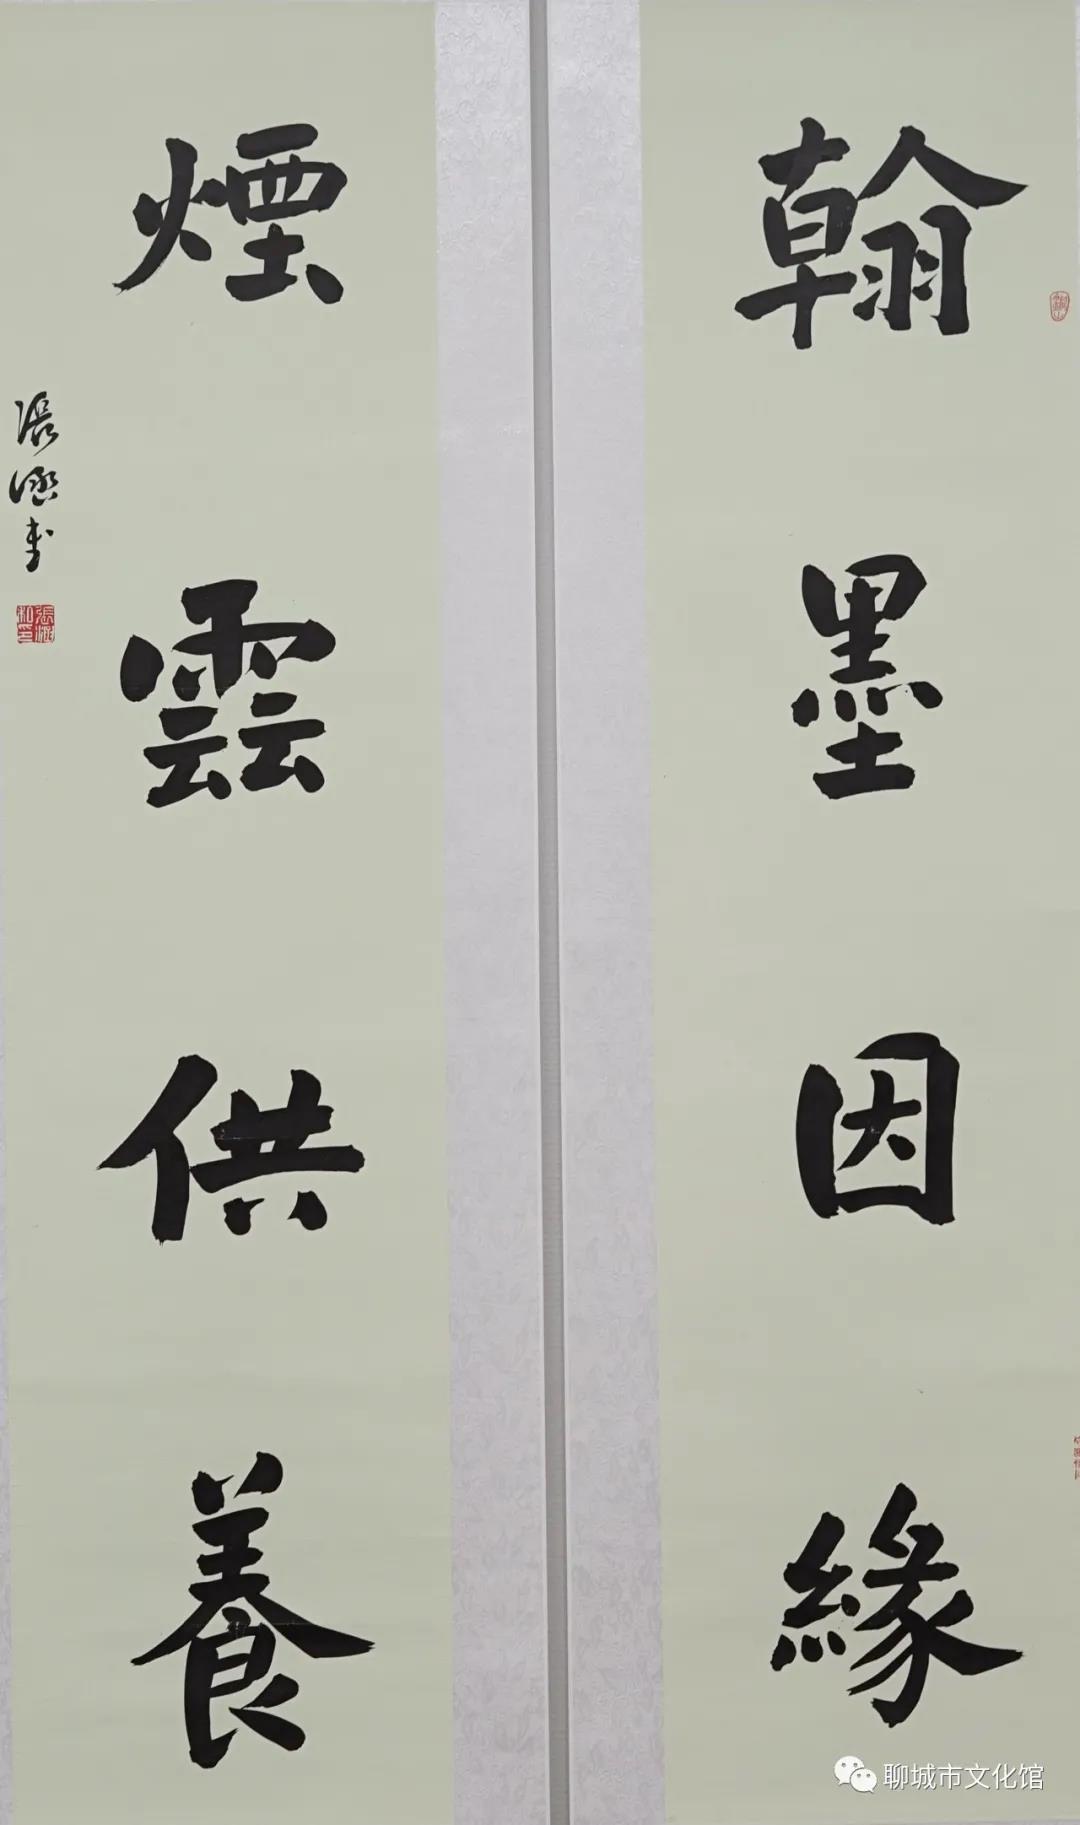 翰墨因緣
煙雲供養
張涵書
聊城市文化馆